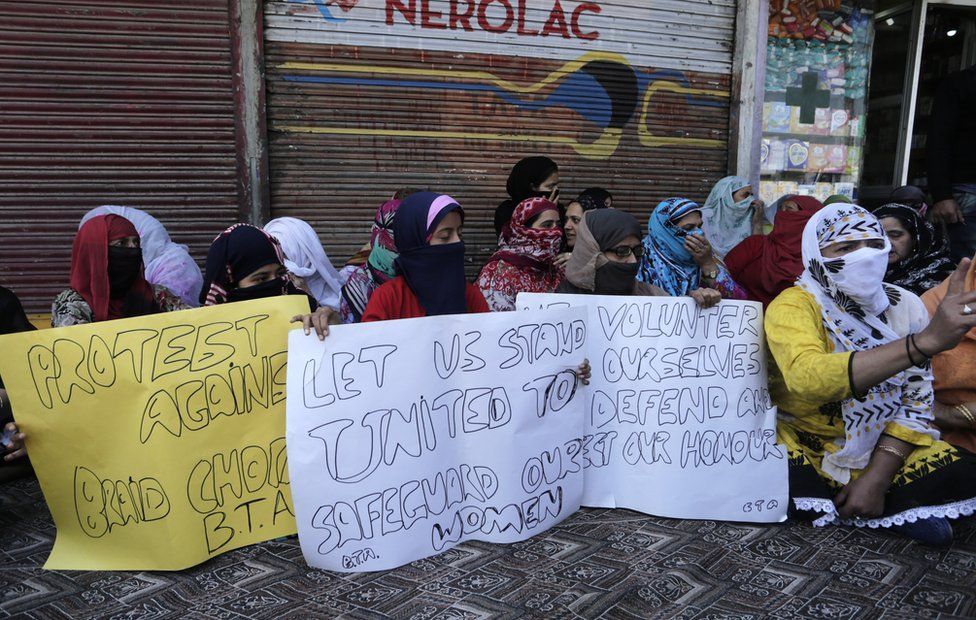 NEROLAC
PROTEST
AGAINS
BRAID CHOP
B.T.A
LET US STAND
UNITED TO
SAFEGUARD OUR
WOMEN
B.T.A.
WE VOLUNTER
OURSELVES
DEFEND AND
ECT OUR HONOUR
BTA